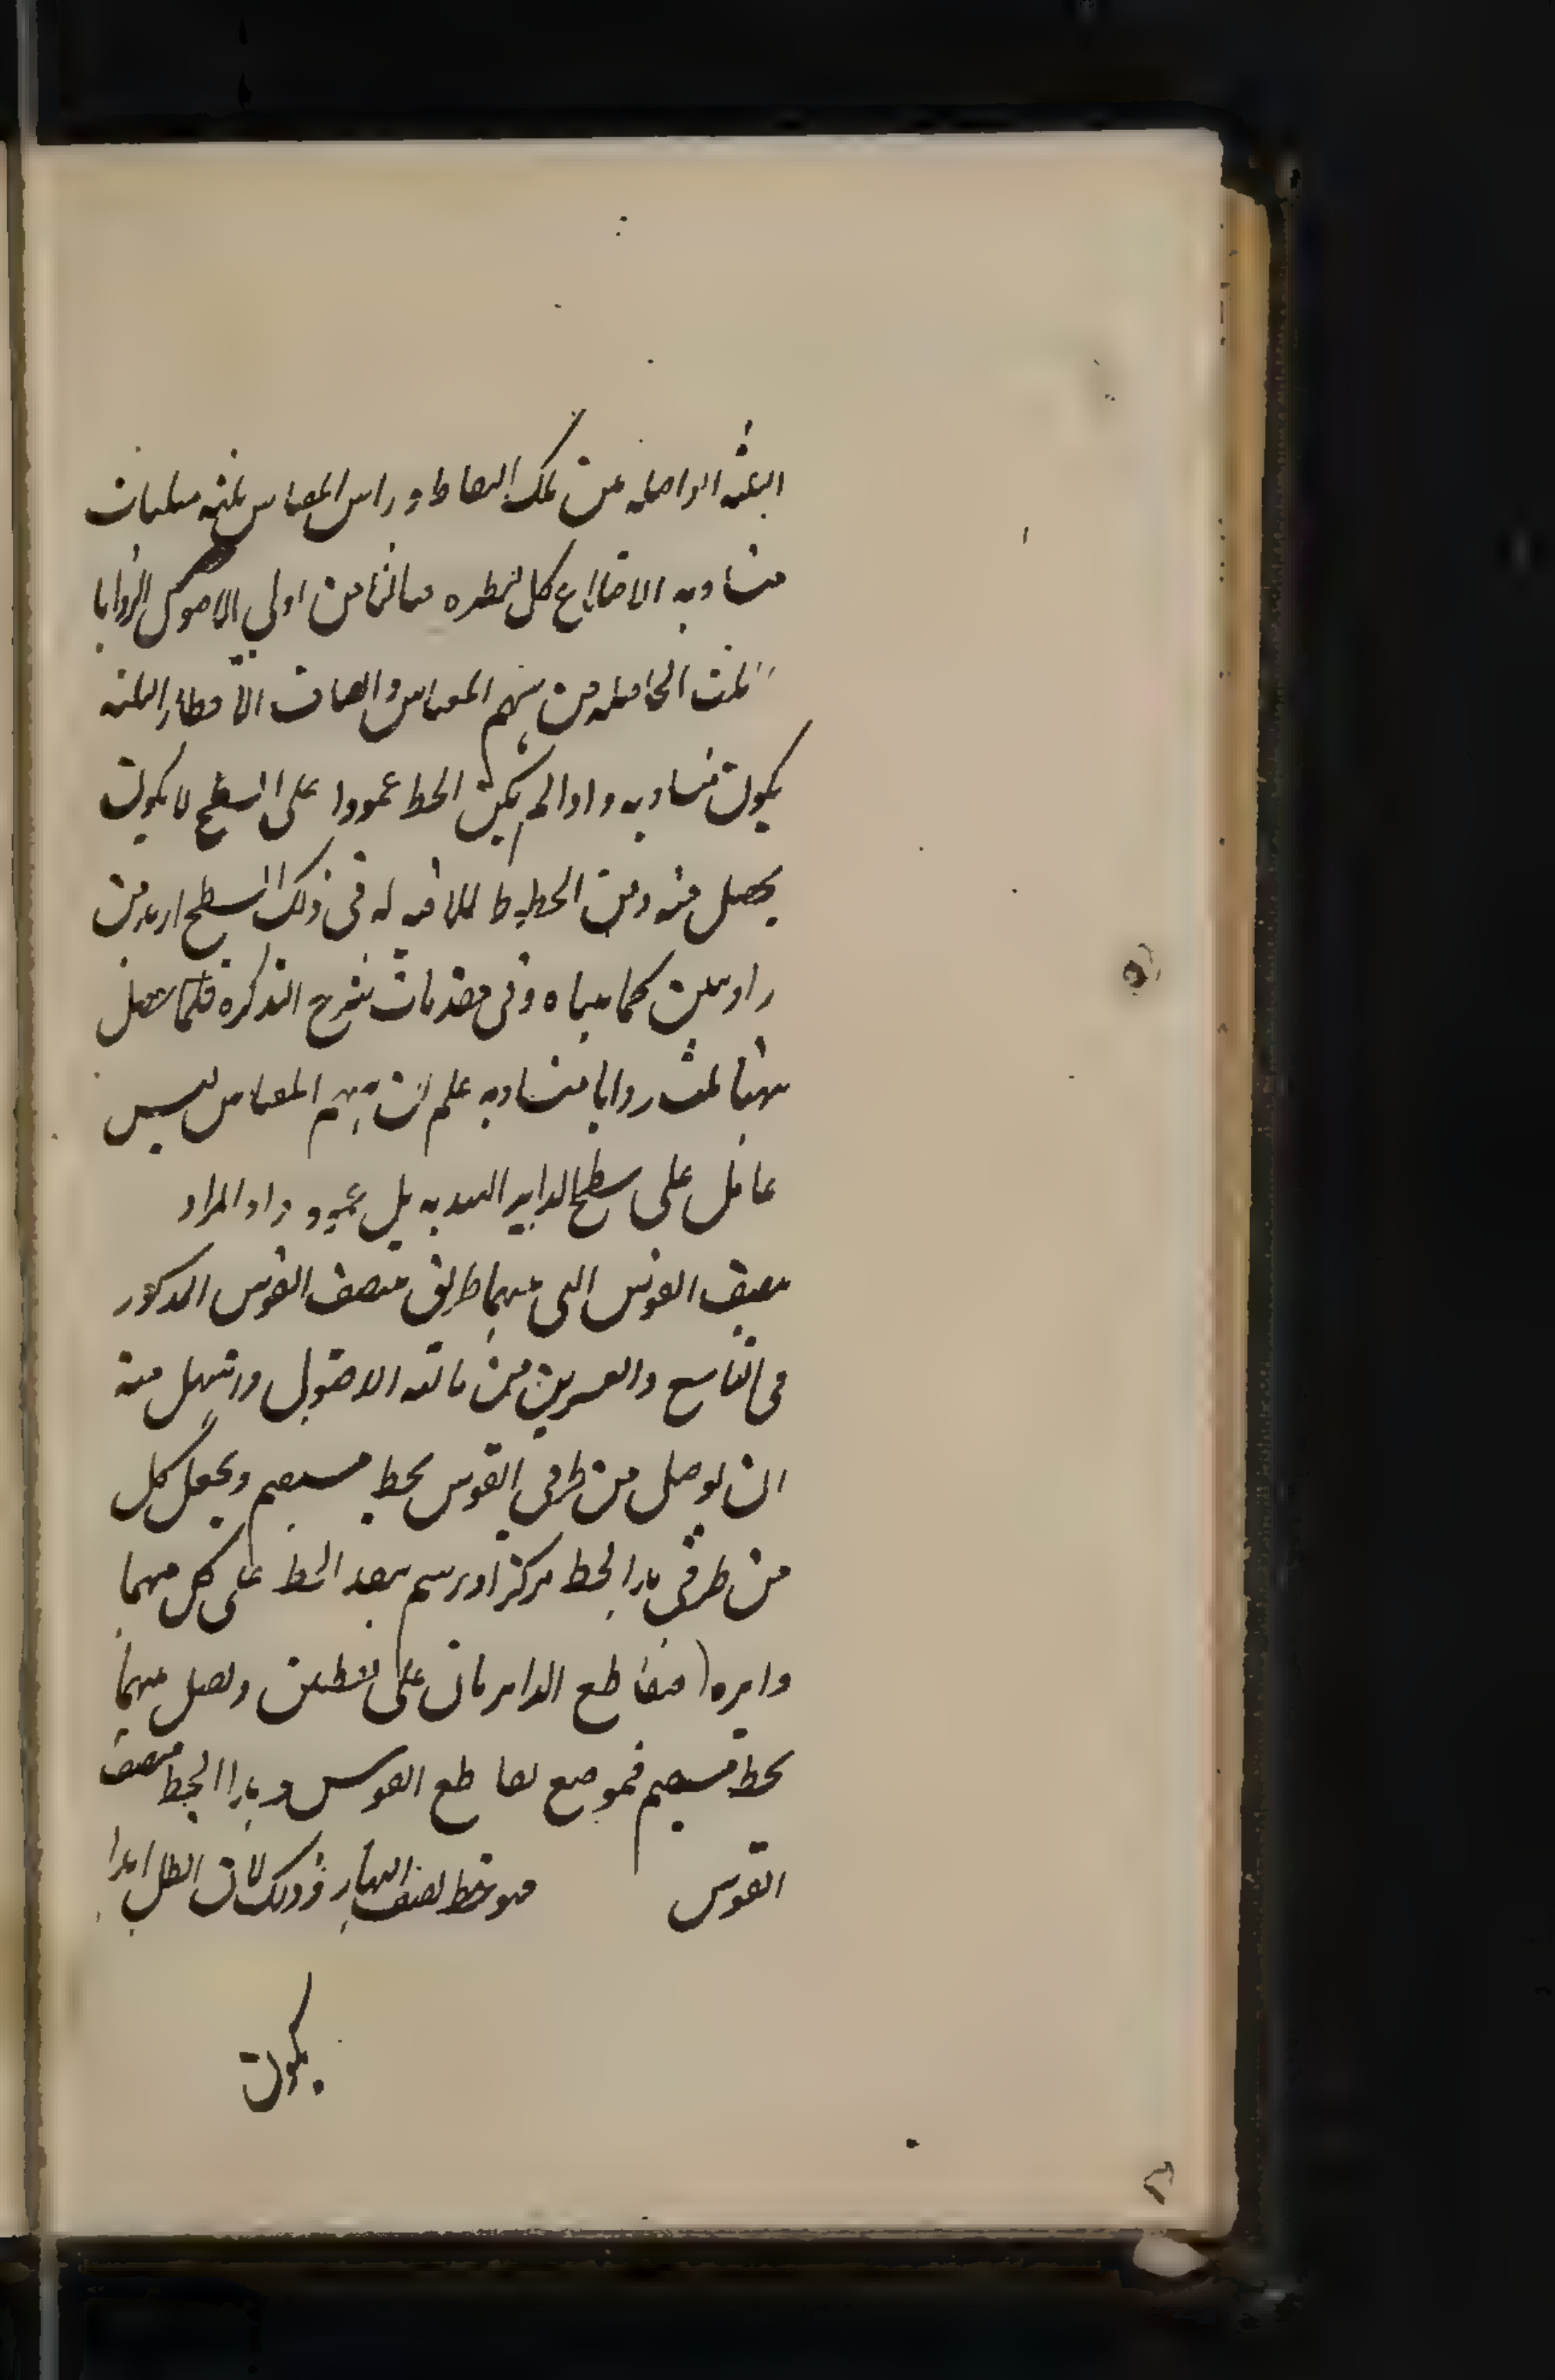 الثلثه الواصله من تلك النقاط وراس المقياس ثلثه مثلثات
متساويه الاضلاع كل لنظيره من اولي الاصول الزوايا
ثلث الحاصله من سهم المقياس وانصاف الاقطار الثلثه
يكون متساويه واذا لم يكن الخط عمودا على السطح لا يكون
يحصل منه ومن الخطوط الملاقيه له في ذلك السطح ازيد من
زاويتين كما بيناه في مقدمات شرح التذكره فلما حصل
ههنا ثلث زوايا متساويه علم ان سهم المقياس ليس
مائل على سطح الدايره الهنديه بل عمود واذا المراد
تنصيف القوس التي بينهما طريق تنصف القوس المذكور
في التاسع والعشرين من ثالثه الاصول واسهل منه
ان يوصل من طرفي القوس بخط مستقيم ويجعل كل
من طرفي هذا الخط مركزا ويرسم ببعد الخط على كل منهما
دايره متقاطع الدايرتان على نقطتين ونصل بينهما
بخط مستقيم فموضع تقاطع القوس وهذا الخط منتصف
القوس هو خط نصف النهار وذلك لان الظل ابدا
يكون